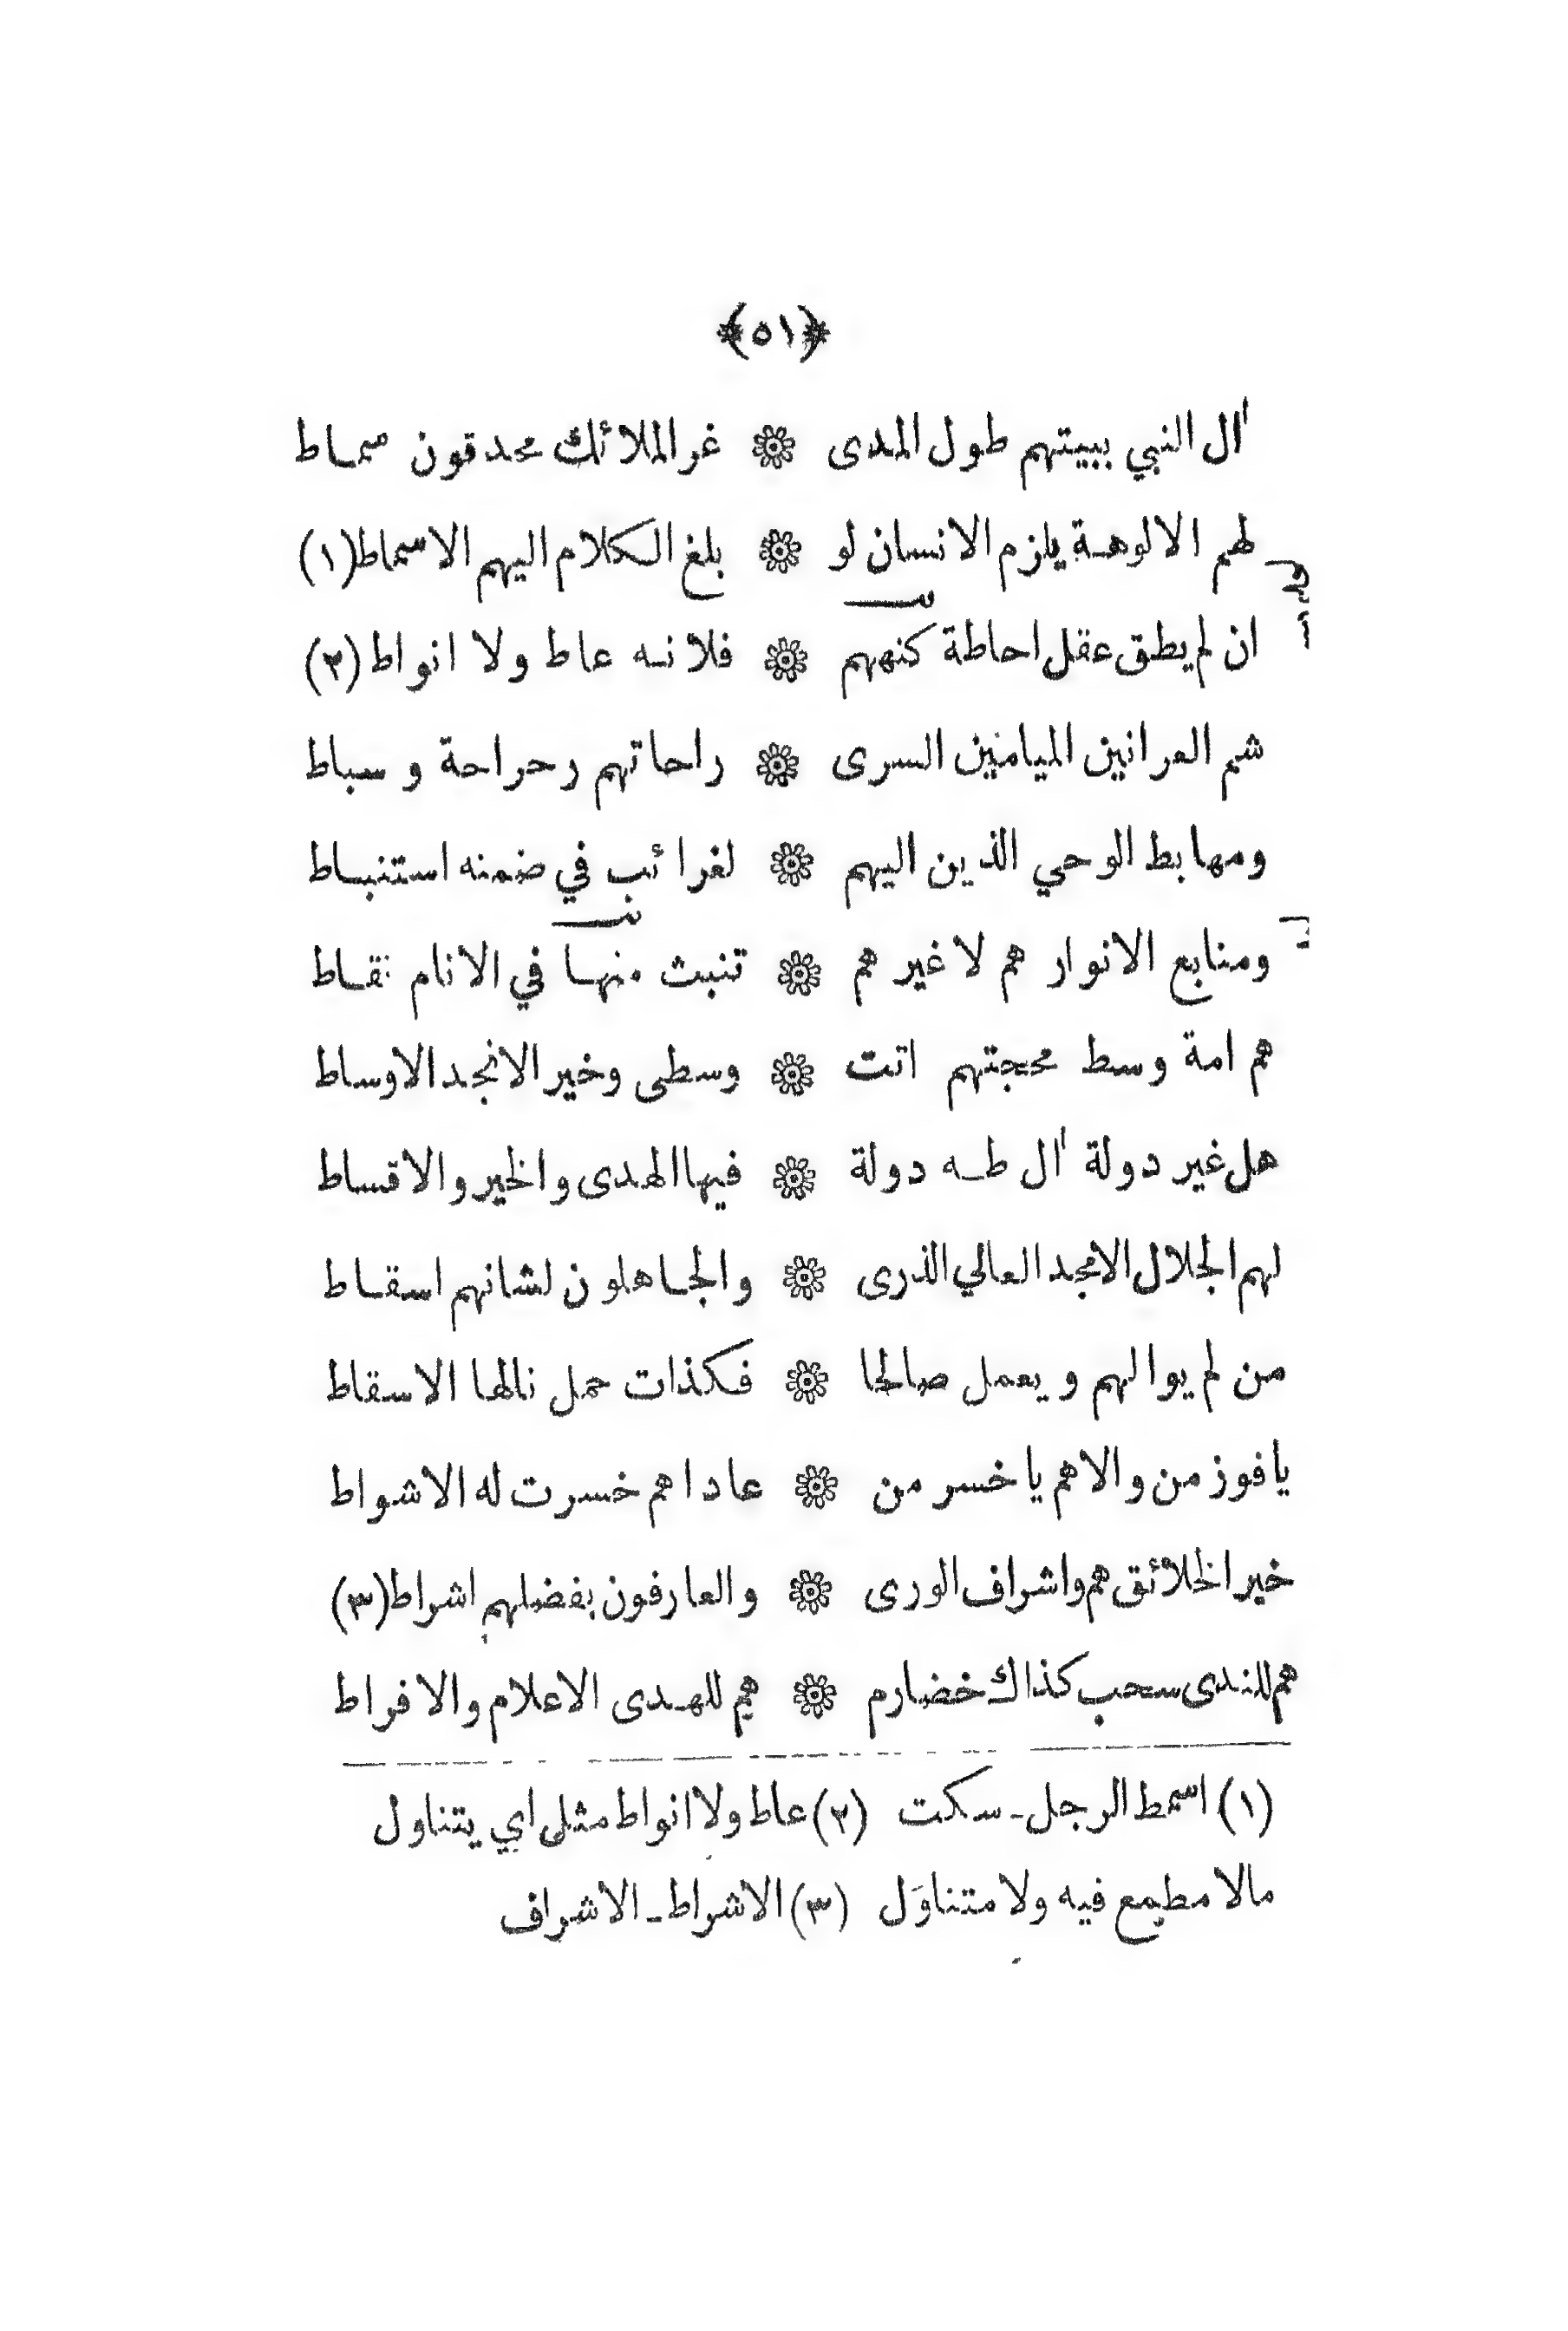 ﴿٥١﴾
اٰل النبي ببيتهم طول المدى ❊ غر الملائك محدقون سماط
لهم الالوهة يلزم الانسان لو ❊ بلغ الكلام اليهم الاسماط (١)
ان لم يطق عقل احاطة كنههم ❊ فلانه عاط ولا انواط (٢)
شم العرانين الميامنين السرى ❊ راحاتهم رحراحة و سباط
ومهابط الوحي الذين اليهم ❊ لغرائب في ضمنه استنباط
ومنابع الانوار هم لا غير هم ❊ تنبث منها في الانام نقاط
هم امة وسط محجتهم اتت ❊ وسطى وخير الانجد الاوساط
هل غير دولة اٰل طه دولة ❊ فيها الهدى والخير والاقساط
لهم الجلال الامجد العالي الذرى ❊ والجاهلون لشانهم اسقاط
من لم يوالهم ويعمل صالحا ❊ فكذات حمل نالها الاسقاط
يا فوز من والاهم يا خسر من ❊ عاداهم خسرت له الاشواط
خير الخلائق هم واشراف الورى ❊ والعارفون بفضلهم اشراط (٣)
هم للندى سحب كذاك خضارم ❊ هم للهدى الاعلام والافراط
(١) اسمط الرجل ـ سكت (٢) عاط ولا انواط مثل اي يتناول
مالا مطمع فيه ولا متناوَل (٣) الاشراط ـ الاشراف